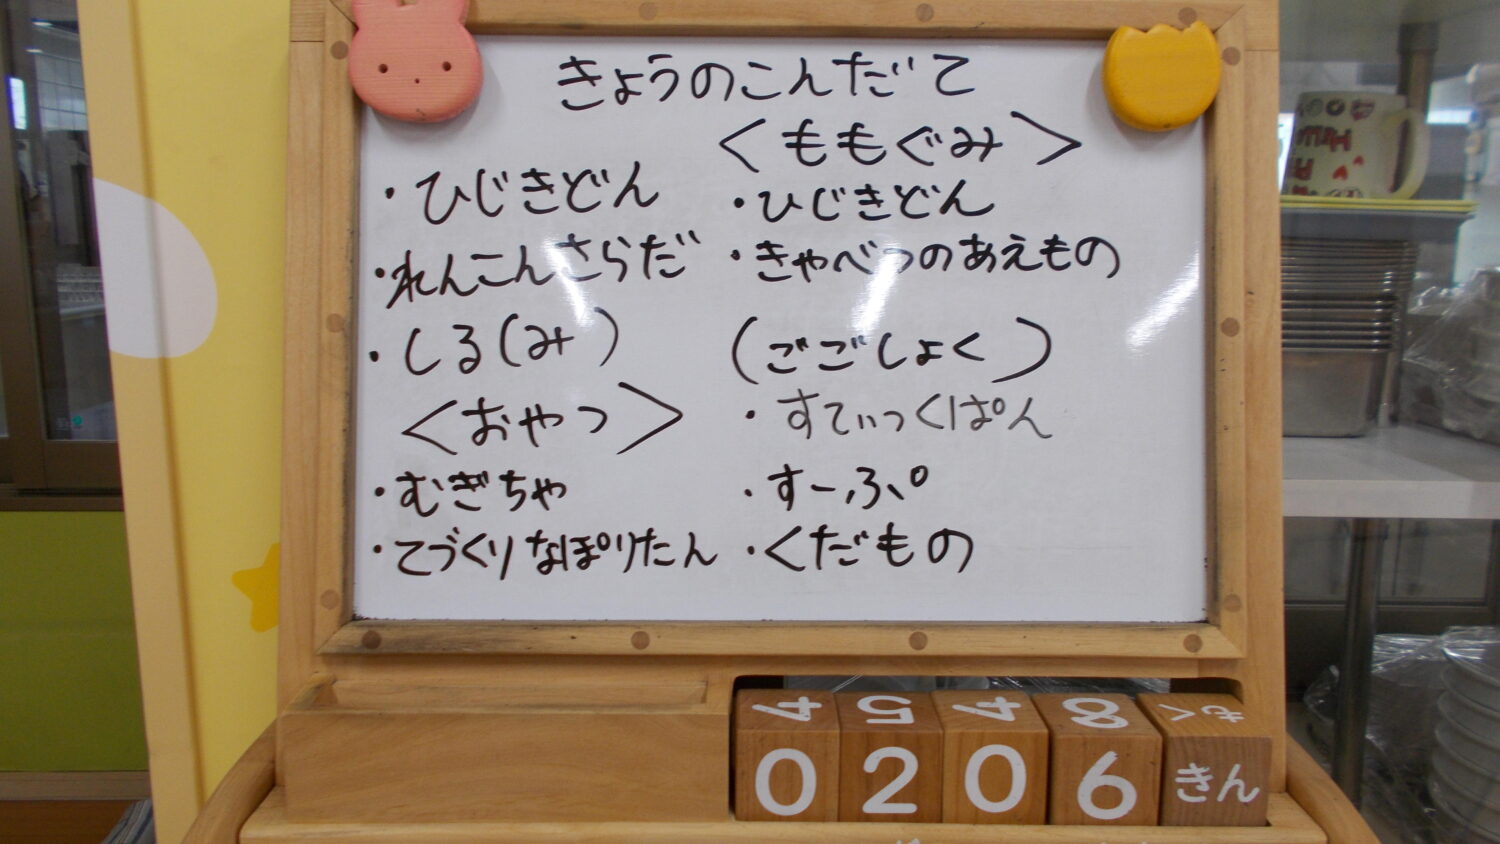 きょうのこんだて
・ひじきどん
・れんこんさらだ
・しる(み)
<おやつ>
・むぎちゃ
・てづくりなぽりたん
<ももぐみ>
・ひじきどん
・きゃべつのあえもの
(ごごしょく)
・すてぃっくぱん
・すーぷ
・くだもの
4 5 4 8 もく
0 2 0 6 きん